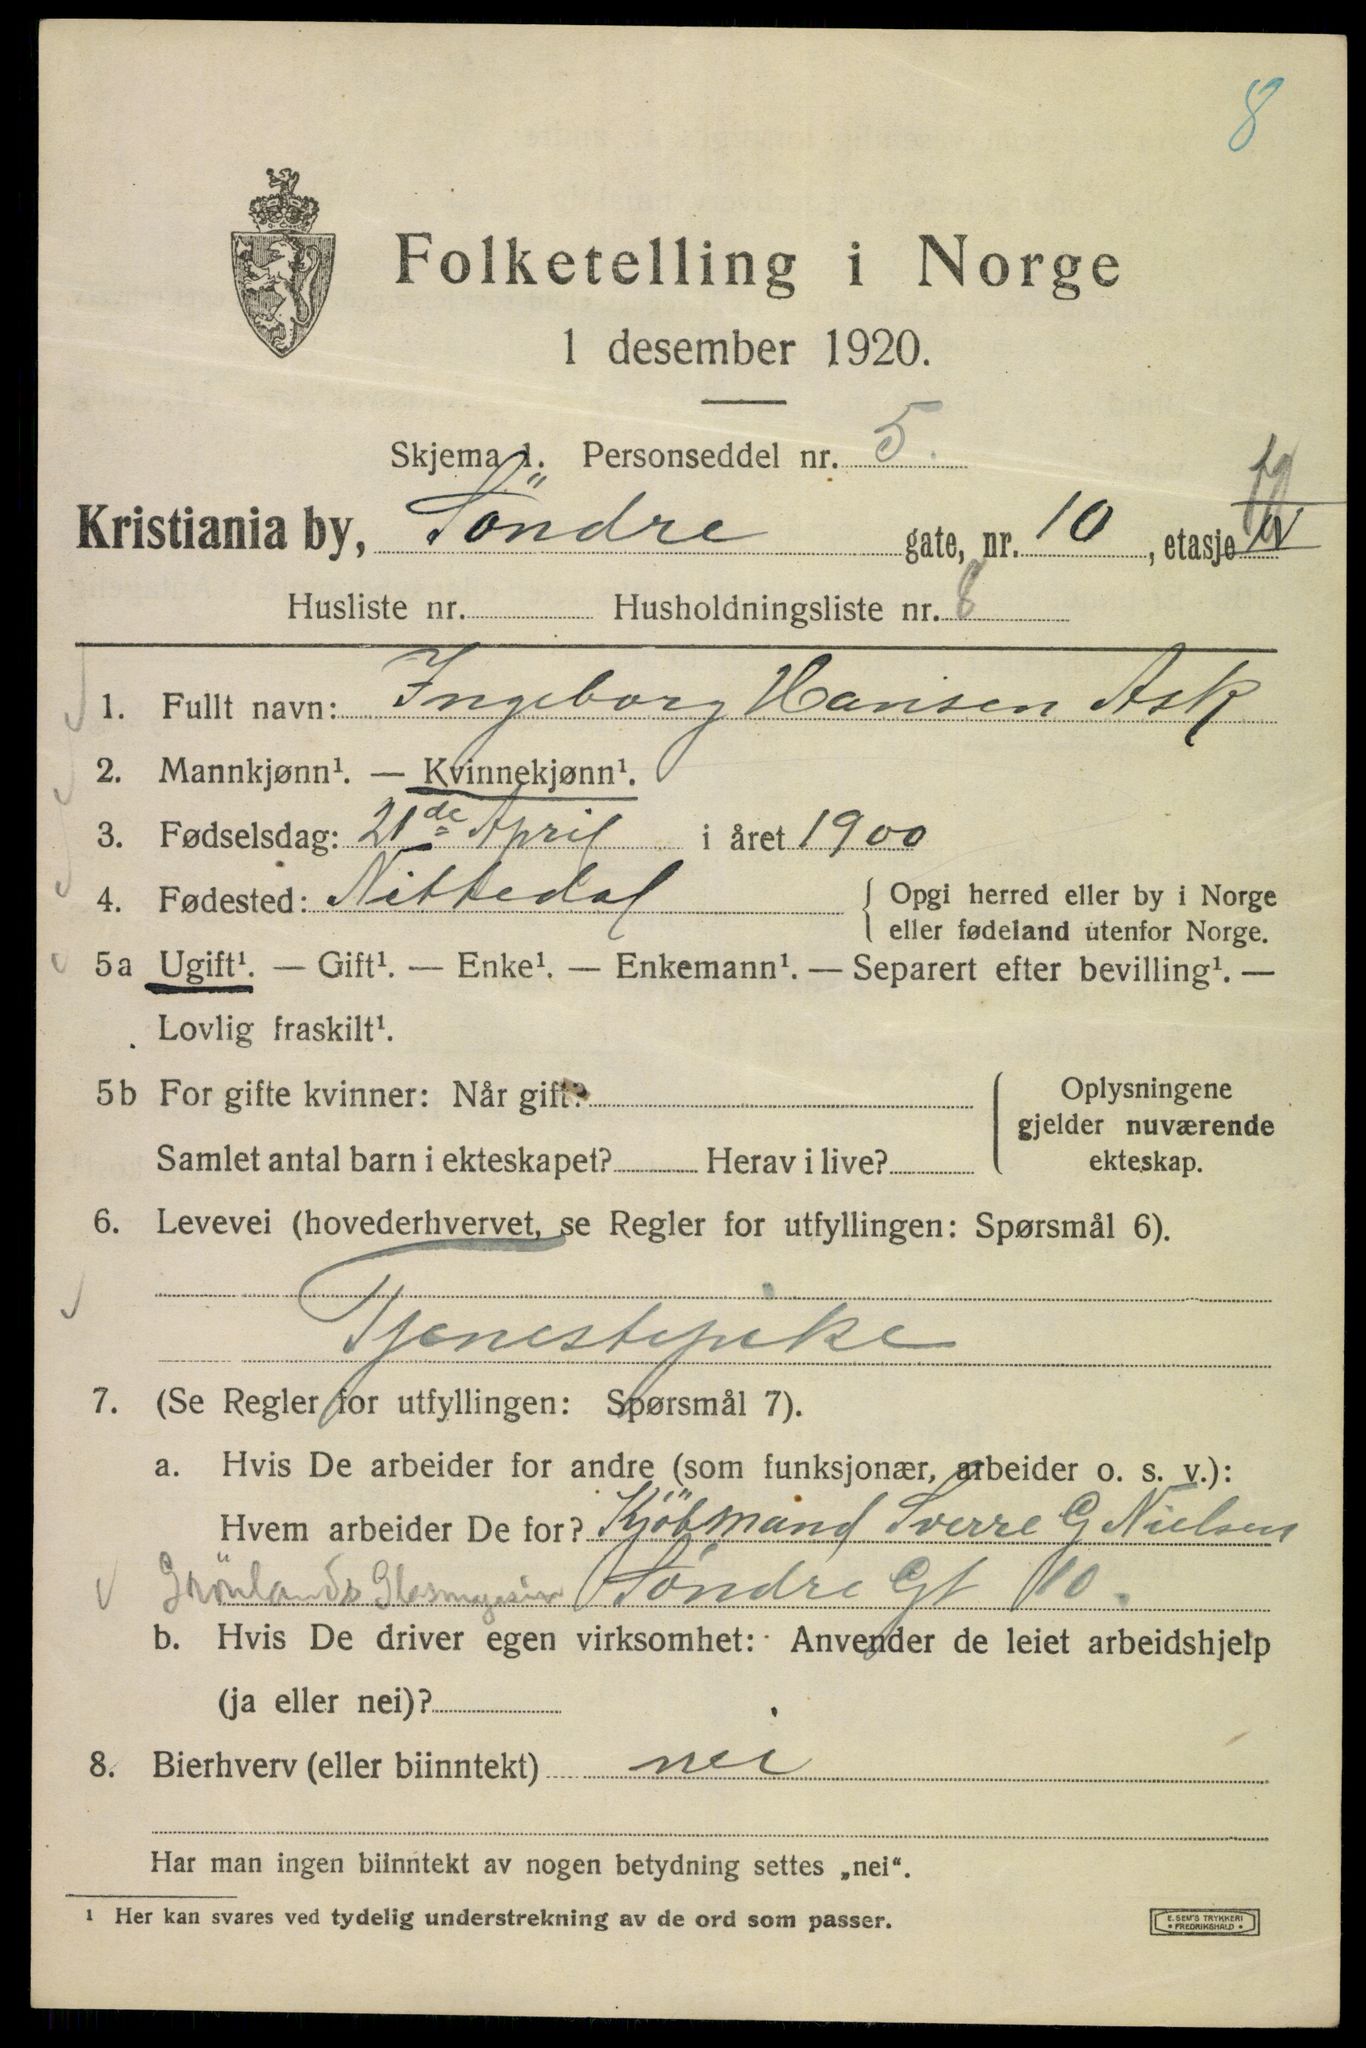 8
Folketelling i Norge
1 desember 1920.
Skjema 1. Personseddel nr. 5.
Kristiania by, Söndre gate, nr. 10, etasje IV
Husliste nr. Husholdningsliste nr. 8
1. Fullt navn: Ingeborg Hansen Ask
2. Mannkjønn¹. — Kvinnekjønn¹.
3. Fødselsdag: 21de April i året 1900
4. Fødested: Nittedal { Opgi herred eller by i Norge
eller fødeland utenfor Norge.
5a Ugift¹. — Gift¹. — Enke¹. — Enkemann¹. — Separert efter bevilling¹. —
Lovlig fraskilt¹.
5b For gifte kvinner: Når gift?
Samlet antal barn i ekteskapet? Herav i live?
Oplysningene
gjelder nuværende
ekteskap.
6. Levevei (hovederhvervet, se Regler for utfyllingen: Spørsmål 6).
Tjenestepike
7. (Se Regler for utfyllingen: Spørsmål 7).
a. Hvis De arbeider for andre (som funksjonær, arbeider o. s. v.):
Hvem arbeider De for? Kjöbmand Sverre G Nielsen
Grönlands Glasmagasin Söndre Gt 10.
b. Hvis De driver egen virksomhet: Anvender de leiet arbeidshjelp
(ja eller nei)?
8. Bierhverv (eller biinntekt) nei
Har man ingen biinntekt av nogen betydning settes „nei“.
¹ Her kan svares ved tydelig understrekning av de ord som passer.
E. SEM'S TRYKKERI
• FREDRIKSHALD •